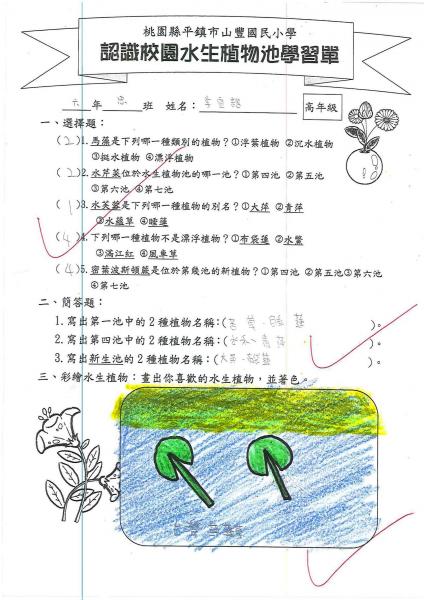 桃園縣平鎮市山豐國民小學
認識校園水生植物池學習單
六 年 忠 班 姓名： 高年級
一、選擇題：
(2)1.馬藻是下列哪一種類別的植物？①浮葉植物 ②沉水植物
③挺水植物 ④漂浮植物
(2)2.水芹菜位於水生植物池的哪一池？①第四池 ②第五池
③第六池 ④第七池
(1)3.水芙蓉是下列哪一種植物的別名？①大萍 ②青萍
③水蘊草 ④睡蓮
(4)4.下列哪一種植物不是漂浮植物？①布袋蓮 ②水鱉
③滿江紅 ④風車草
(4)5.密葉波斯頓蕨是位於第幾池的新植物？①第四池 ②第五池③第六池
④第七池
二、簡答題：
1.寫出第一池中的2種植物名稱：( 蓮 )。
2.寫出第四池中的2種植物名稱：( )。
3.寫出新生池的2種植物名稱：(大萍、 )。
三、彩繪水生植物：畫出你喜歡的水生植物，並著色。